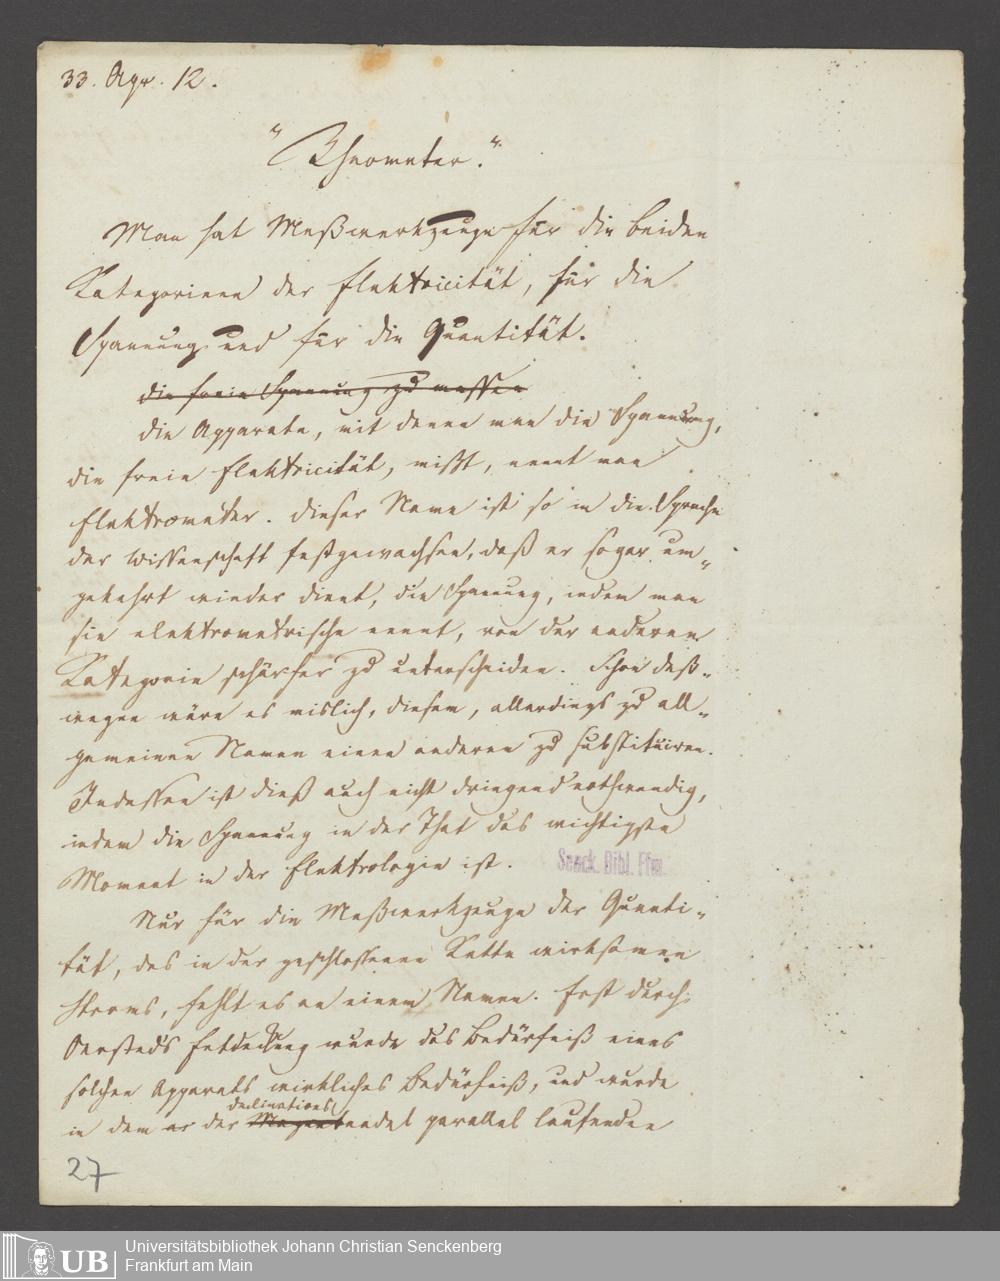 33. Apr. 12.
"Rheometer."
Man hat Meßwerkzeuge für die beiden
Kategorieen der Elektricität, für die
Spannung und für die Quantität.
die freie Spannung zu messen
die Apparate, mit denen man die Spannung,
die freie Elektricität, mißt, nennt man
Elektrometer. Dieser Name ist so in die Sprache
der Wissenschaft festgewachsen, daß er sogar um-
gekehrt wieder dient, die Spannung, indem man
sie elektrometrische nennt, von der anderen
Kategorie schärfer zu unterscheiden. Schon deß-
wegen wäre es mislich, diesem, allerdings zu all-
gemeinen Namen einen anderen zu substituiren.
Indessen ist dieß auch nicht dringend nothwendig,
indem die Spannung in der That das wichtigste
Moment in der Elektrologie ist.
Senck. Bibl. Ffm.
Nur für die Meßwerkzeuge der Quanti-
tät, des in der geschlossenen Kette wirksamen
Stroms, fehlt es an einem Namen. Erst durch
Oersteds Entdeckung wurde das Bedürfniß eines
solchen Apparats wirkliches Bedürfniß, und wurde
declinations
in dem er der Magnetnadel parallel laufenden
27
UB
Universitätsbibliothek Johann Christian Senckenberg
Frankfurt am Main